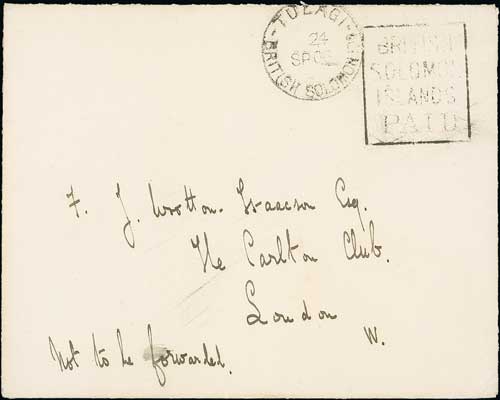 TULAGI
24
SP 06
BRITISH SOLOMON
BRITISH
SOLOMON
ISLANDS
PAID
F. J. Wootton-Isaacson Esq.
The Carlton Club.
London
W.
Not to be forwarded.